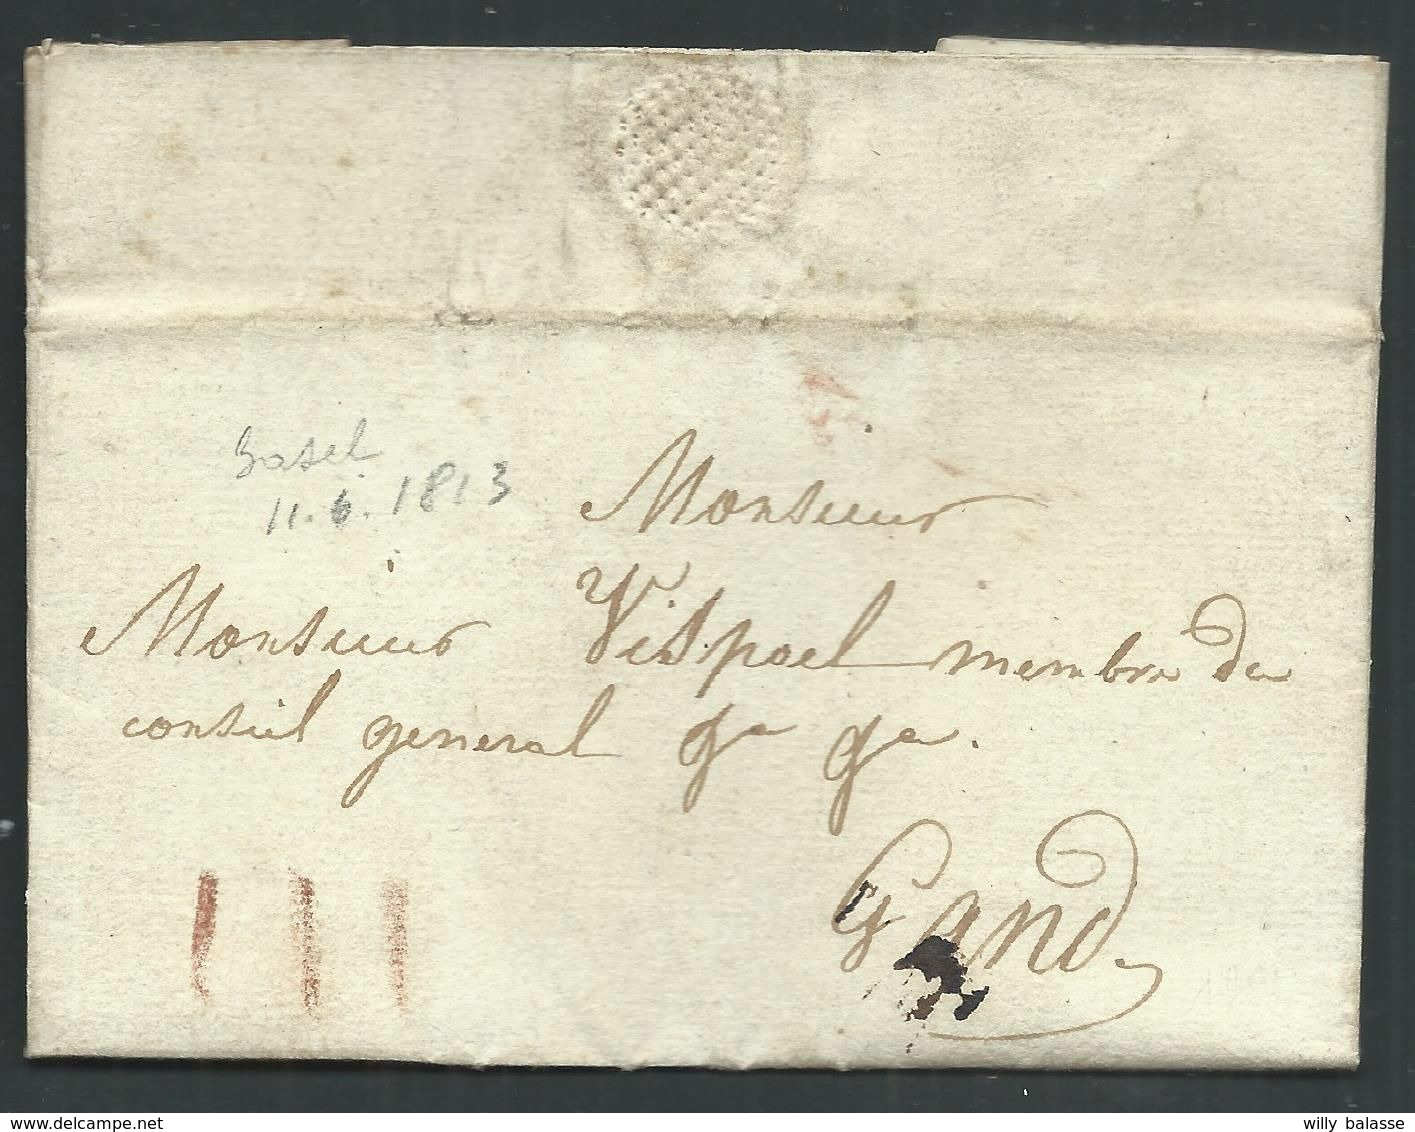 Basel
11.6.1813
Monsieur
Monsieur Vispoel membre de
conseil general ga ga.
Gand
willy balasse